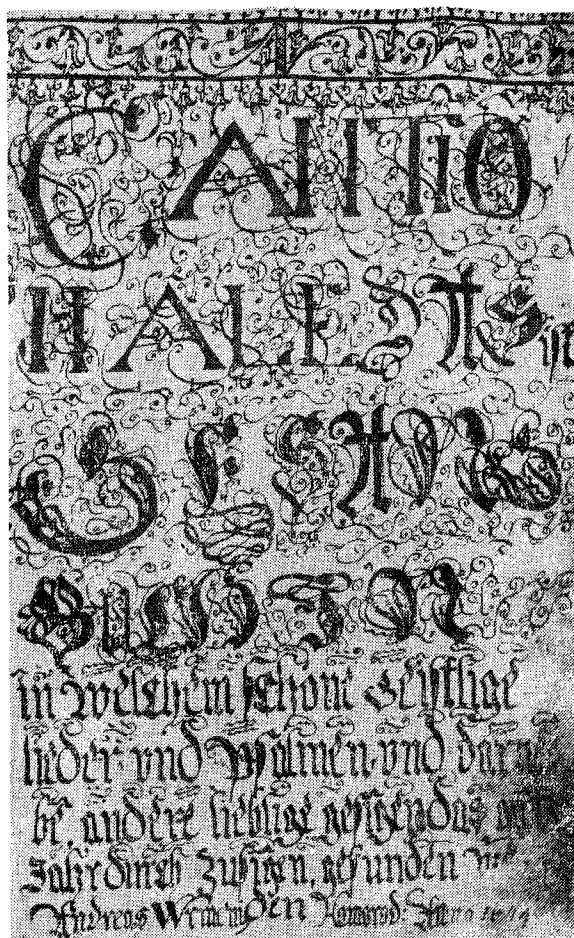 CANTIO
NALE DAS yst
GESANG
BUCH
in welchem schone Geistlige
lieder vnd Psalmen vnd darne
be andere lieblige gesenge das
Jahr durch zusingen gefunden
Andreas Anno